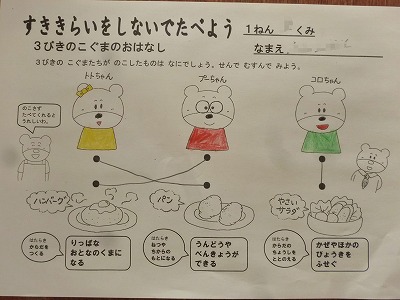 すききらいをしないでたべよう
1ねん くみ
3びきのこぐまのおはなし
なまえ
3びきの こぐまたちが のこしたものは なにでしょう。せんで むすんで みよう。
トトちゃん
プーちゃん
コロちゃん
のこさず
たべてくれると
うれしいわ。
ハンバーグ
パン
やさい
サラダ
はたらき
からだを
つくる
りっぱな
おとなのくまに
なる
はたらき
ねつや
ちからの
もとになる
うんどうや
べんきょうが
できる
はたらき
からだの
ちょうしを
ととのえる
かぜやほかの
びょうきを
ふせぐ